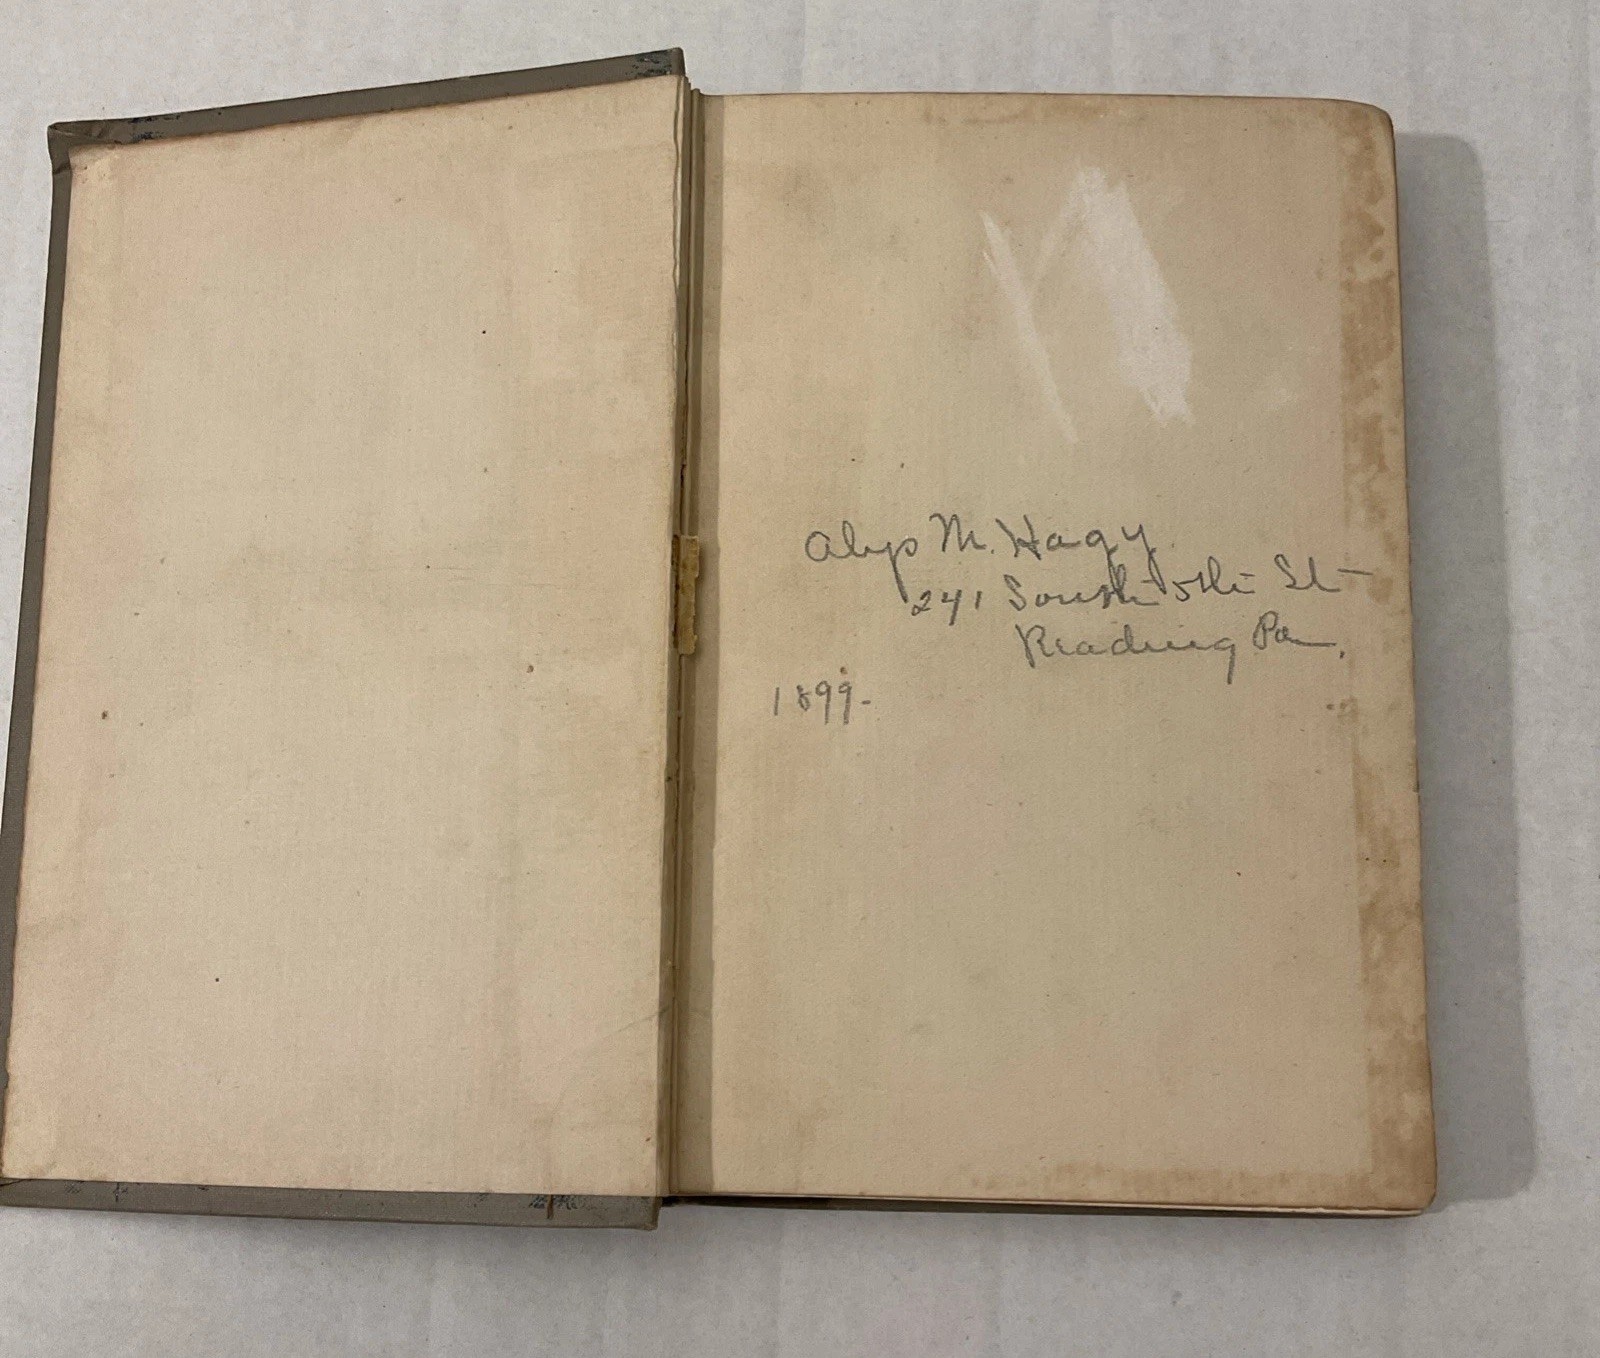 Alys M. Hagy
241 South 5th St
Reading Pa.
1899-